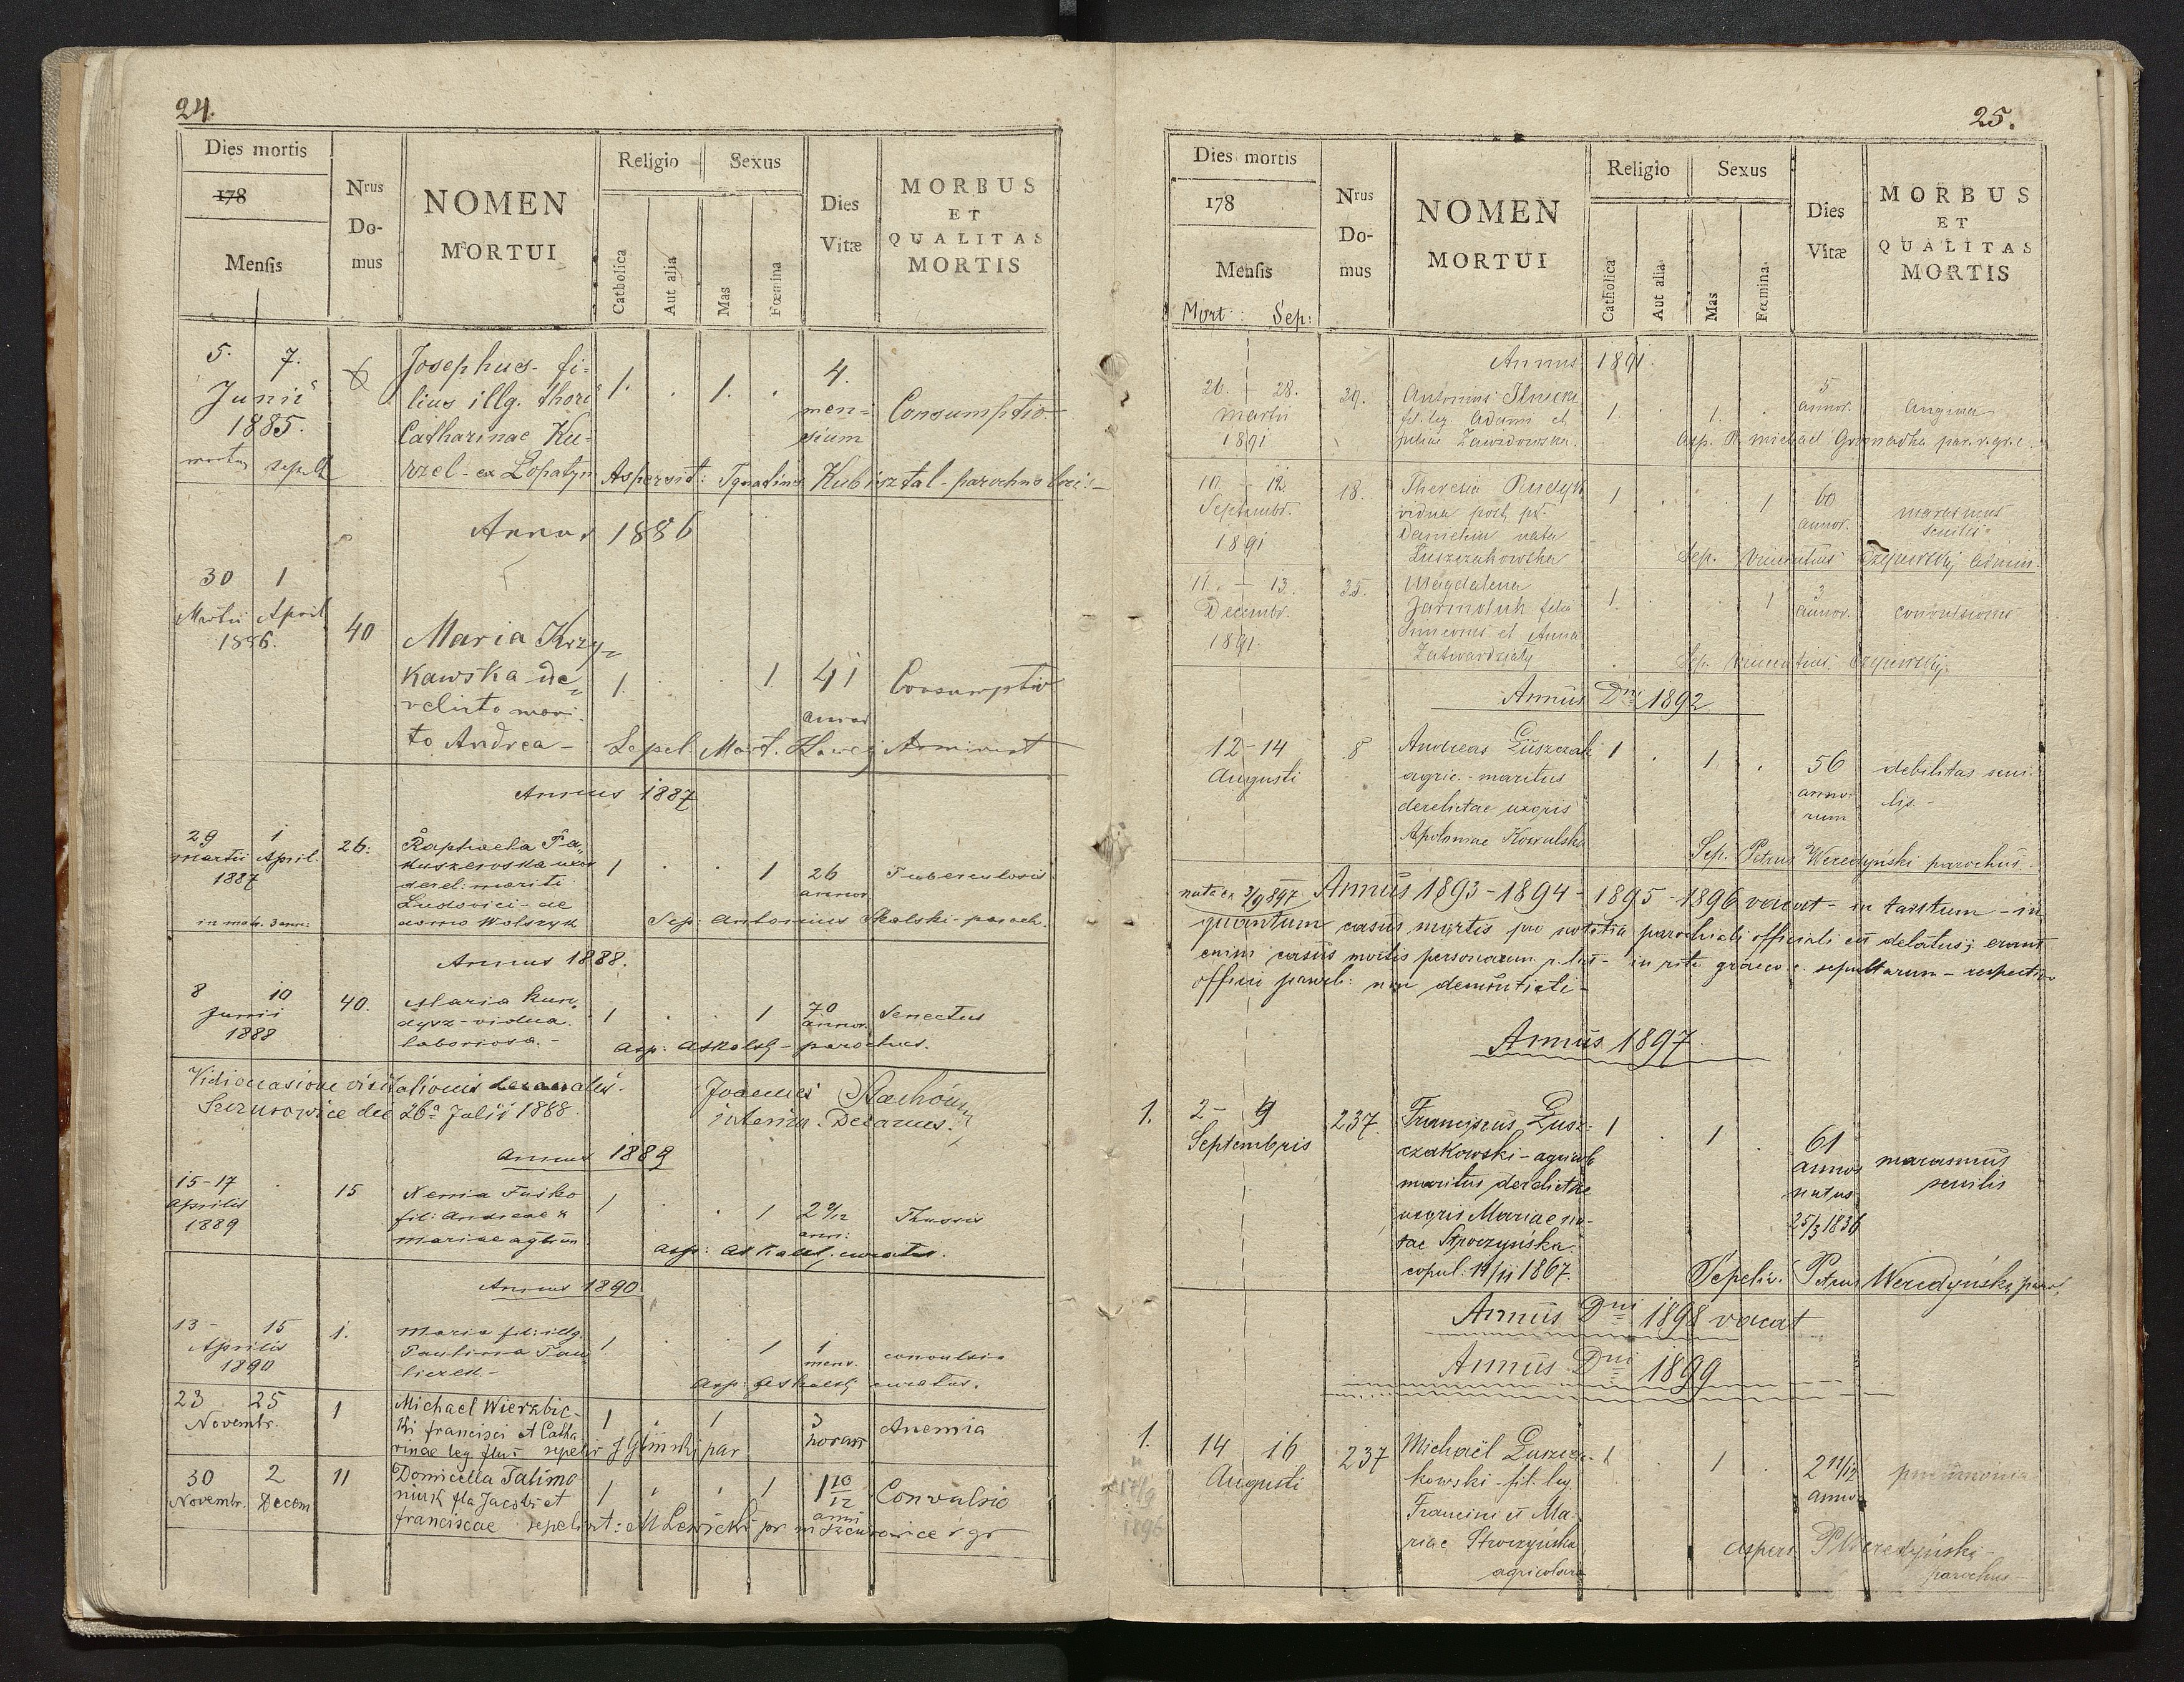 24.
Dies mortis
178
Mensis
Nrus
Do-
mus
NOMEN
MORTUI
Religio
Catholica
Aut alia
Sexus
Mas
Fœmina
Dies
Vitæ
MORBUS
ET
QUALITAS
MORTIS
5. 7.
Junii
1885.
sepult
6
Josephus fi-
lius illg. thori
Catharinae Ku-
rzel - ex Łopatyn
1. . 1. .
4.
men-
sium
Consumptio
Aspersit: Ignatius Kubisztal - parochus loci
Annus 1886
30 1
Martii April
1886.
40
Maria Krzy-
kawska de
relicto mari-
to Andrea -
1. . . 1.
41
annor
Consumptio
Sepel. Mart. Administ
Annus 1887
29 1
Martii April.
1887
26.
Raphaela
uxor
derel: mariti
Ludovici - de
domo Wolszyk
1 . . 1
26
annor
Tuberculosis
Sep: Antonius Skalski - paroch.
Annus 1888.
8 10
Junii
1888
40.
Maria Kun-
dysz - vidua
laboriosa. -
1 . . 1
70
annor.
Senectus
Asp: ASkalskj - parochus.
Vidi occasione visitationis decanalis.
Szczurowice die 26a Julii 1888.
Joannes
Decanus.
Annus 1889
15-17
Aprilis
1889
15
Xenia Fusko
fil: Andreae &
Mariae
1 . . 1
2 9/12
ann:
Tussis
asp: curatus.
Annus 1890.
13 - 15
Aprilis
1890
1.
Maria fil: illg.
Paulina Pau-
1 . . 1
1
mens.
convulsio
Asp: curatus.
23 25
Novembr.
1
Michael Wierzbic-
ki francisci et Catha
rinae leg flus sepeliv par
1 . 1
3
horas
Anemia
30 2
Novembr. Decem
11
Domicella Talima
niuk fla Jacobi et
franciscae sepelivit: M Lewicki par in Szczurowice r gr
1 . . 1
1 10/12
anni
Convulsio
25.
Dies mortis
178
Mensis
Mort: Sep:
Nrus
Do-
mus
NOMEN
MORTUI
Religio
Catholica
Aut alia
Sexus
Mas
Fœmina
Dies
Vitæ
MORBUS
ET
QUALITAS
MORTIS
Annus 1891.
26. - 28.
Martii
1891
39.
Antonius Ilnicki
fil. leg. Adami et
Juliae Zawadowska.
1. . 1. .
5
annor.
Angina
Asp. R. Michael Gromadka par. r. gr. c.
10. - 12.
Septembr.
1891
18.
Theresia Rudyk
vidua post
Danielem nata
Łuszczakowska
1 . . 1
60
annor.
marasmus
senilis
Sep. Vincentius Czyżewskij admin.
11. - 13.
Decembr.
1891
35.
Magdalena
Jarmoluk filia
Simeonis et Anna
Zatwardziały
1. . . 1
3
annor.
convulsiones
Sep. Vincentius Czyżewskij.
Annus Dni 1892
12 - 14
Augusti
8
Andreas Łuszczak
agric. - maritus
derelictae uxoris
Apoloniae Kowalska
1 . 1. .
56
anno-
rum
debilitas seni-
lis. -
Sep. Petrus Weredyński parochus.
3/9 897 Annus 1893 - 1894 - 1895 - 1896 vacat - in tantum - in
quantum casus mortis pro notitia parochiali officiali est delatus; erant
enim casus mortis personarum r. lat - in ritu graeco c. sepultarum - respective
officii paroch: non denuntiati -
Annus 1897.
1.
2 - 4
Septembris
237.
Franciscus Łusz-
czakowski - agricola
maritus derelictae
uxoris Mariae na-
tae Stroczyńska.
copul: 19/11 1867.
1 . 1 .
61
annos
natus
25/3 1836
marasmus
senilis
Sepeliv. Petrus Weredyński, paro,
Annus Dni 1898 vacat
Annus Dni 1899
1.
14 16
Augusti
237
Michaël Łuszcza-
kowski - fil. leg.
Francisci et Ma-
riae Stroczyńska
agricolarum
1 . 1 .
2 11/12
annor
pneumonia
1896
aspers. P Weredyński -
parochus -